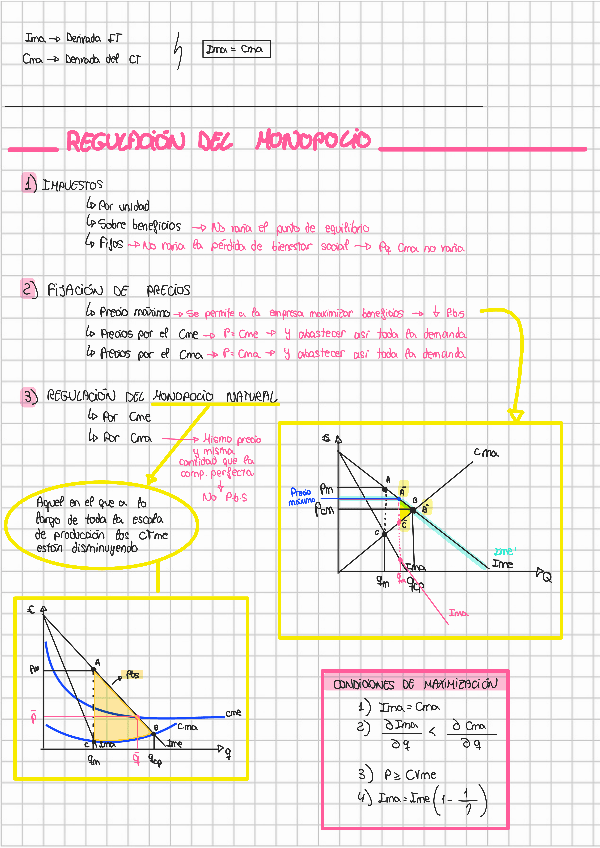 Ima → Derivada IT
Cma → Derivada del CT
Ima = Cma
REGULACIÓN DEL MONOPOLIO
1) IMPUESTOS
↳ Por unidad
↳ Sobre beneficios → No varía el punto de equilibrio
↳ Fijos → No varía la pérdida de bienestar social → Pq Cma no varía
2) FIJACIÓN DE PRECIOS
↳ Precio máximo → Se permite a la empresa maximizar beneficios → ↓ Pbs
↳ Precios por el Cme → P = Cme → Y abastecer así toda la demanda
↳ Precios por el Cma → P = Cma → Y abastecer así toda la demanda
3) REGULACIÓN DEL MONOPOLIO NATURAL
↳ Por Cme
↳ Por Cma → Mismo precio
y misma
cantidad que la
comp. perfecta
↓
No P.b.s
Aquel en el que a lo
largo de toda la escala
de producción los CTme
están disminuyendo
€
Cma
Pm
Precio
máximo
Pcm
A
A'
B
B'
C
C'
Ime'
Ime
Ima
qm
qm
qcp
Q
Ima'
€
Pm
A
Pbs
P̄
Cme
Cma
B
C
Ima
Ime
qm
q̄
qcp
q
CONDICIONES DE MAXIMIZACIÓN
1) Ima = Cma
2) ∂Ima/∂q < ∂Cma/∂q
3) P ≥ CVme
4) Ima = Ime (1 - 1/η)